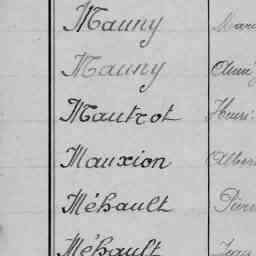 Mauny
Mauny
Mautrot Henri
Mauxion Albert
Méhault
Méhault Jean